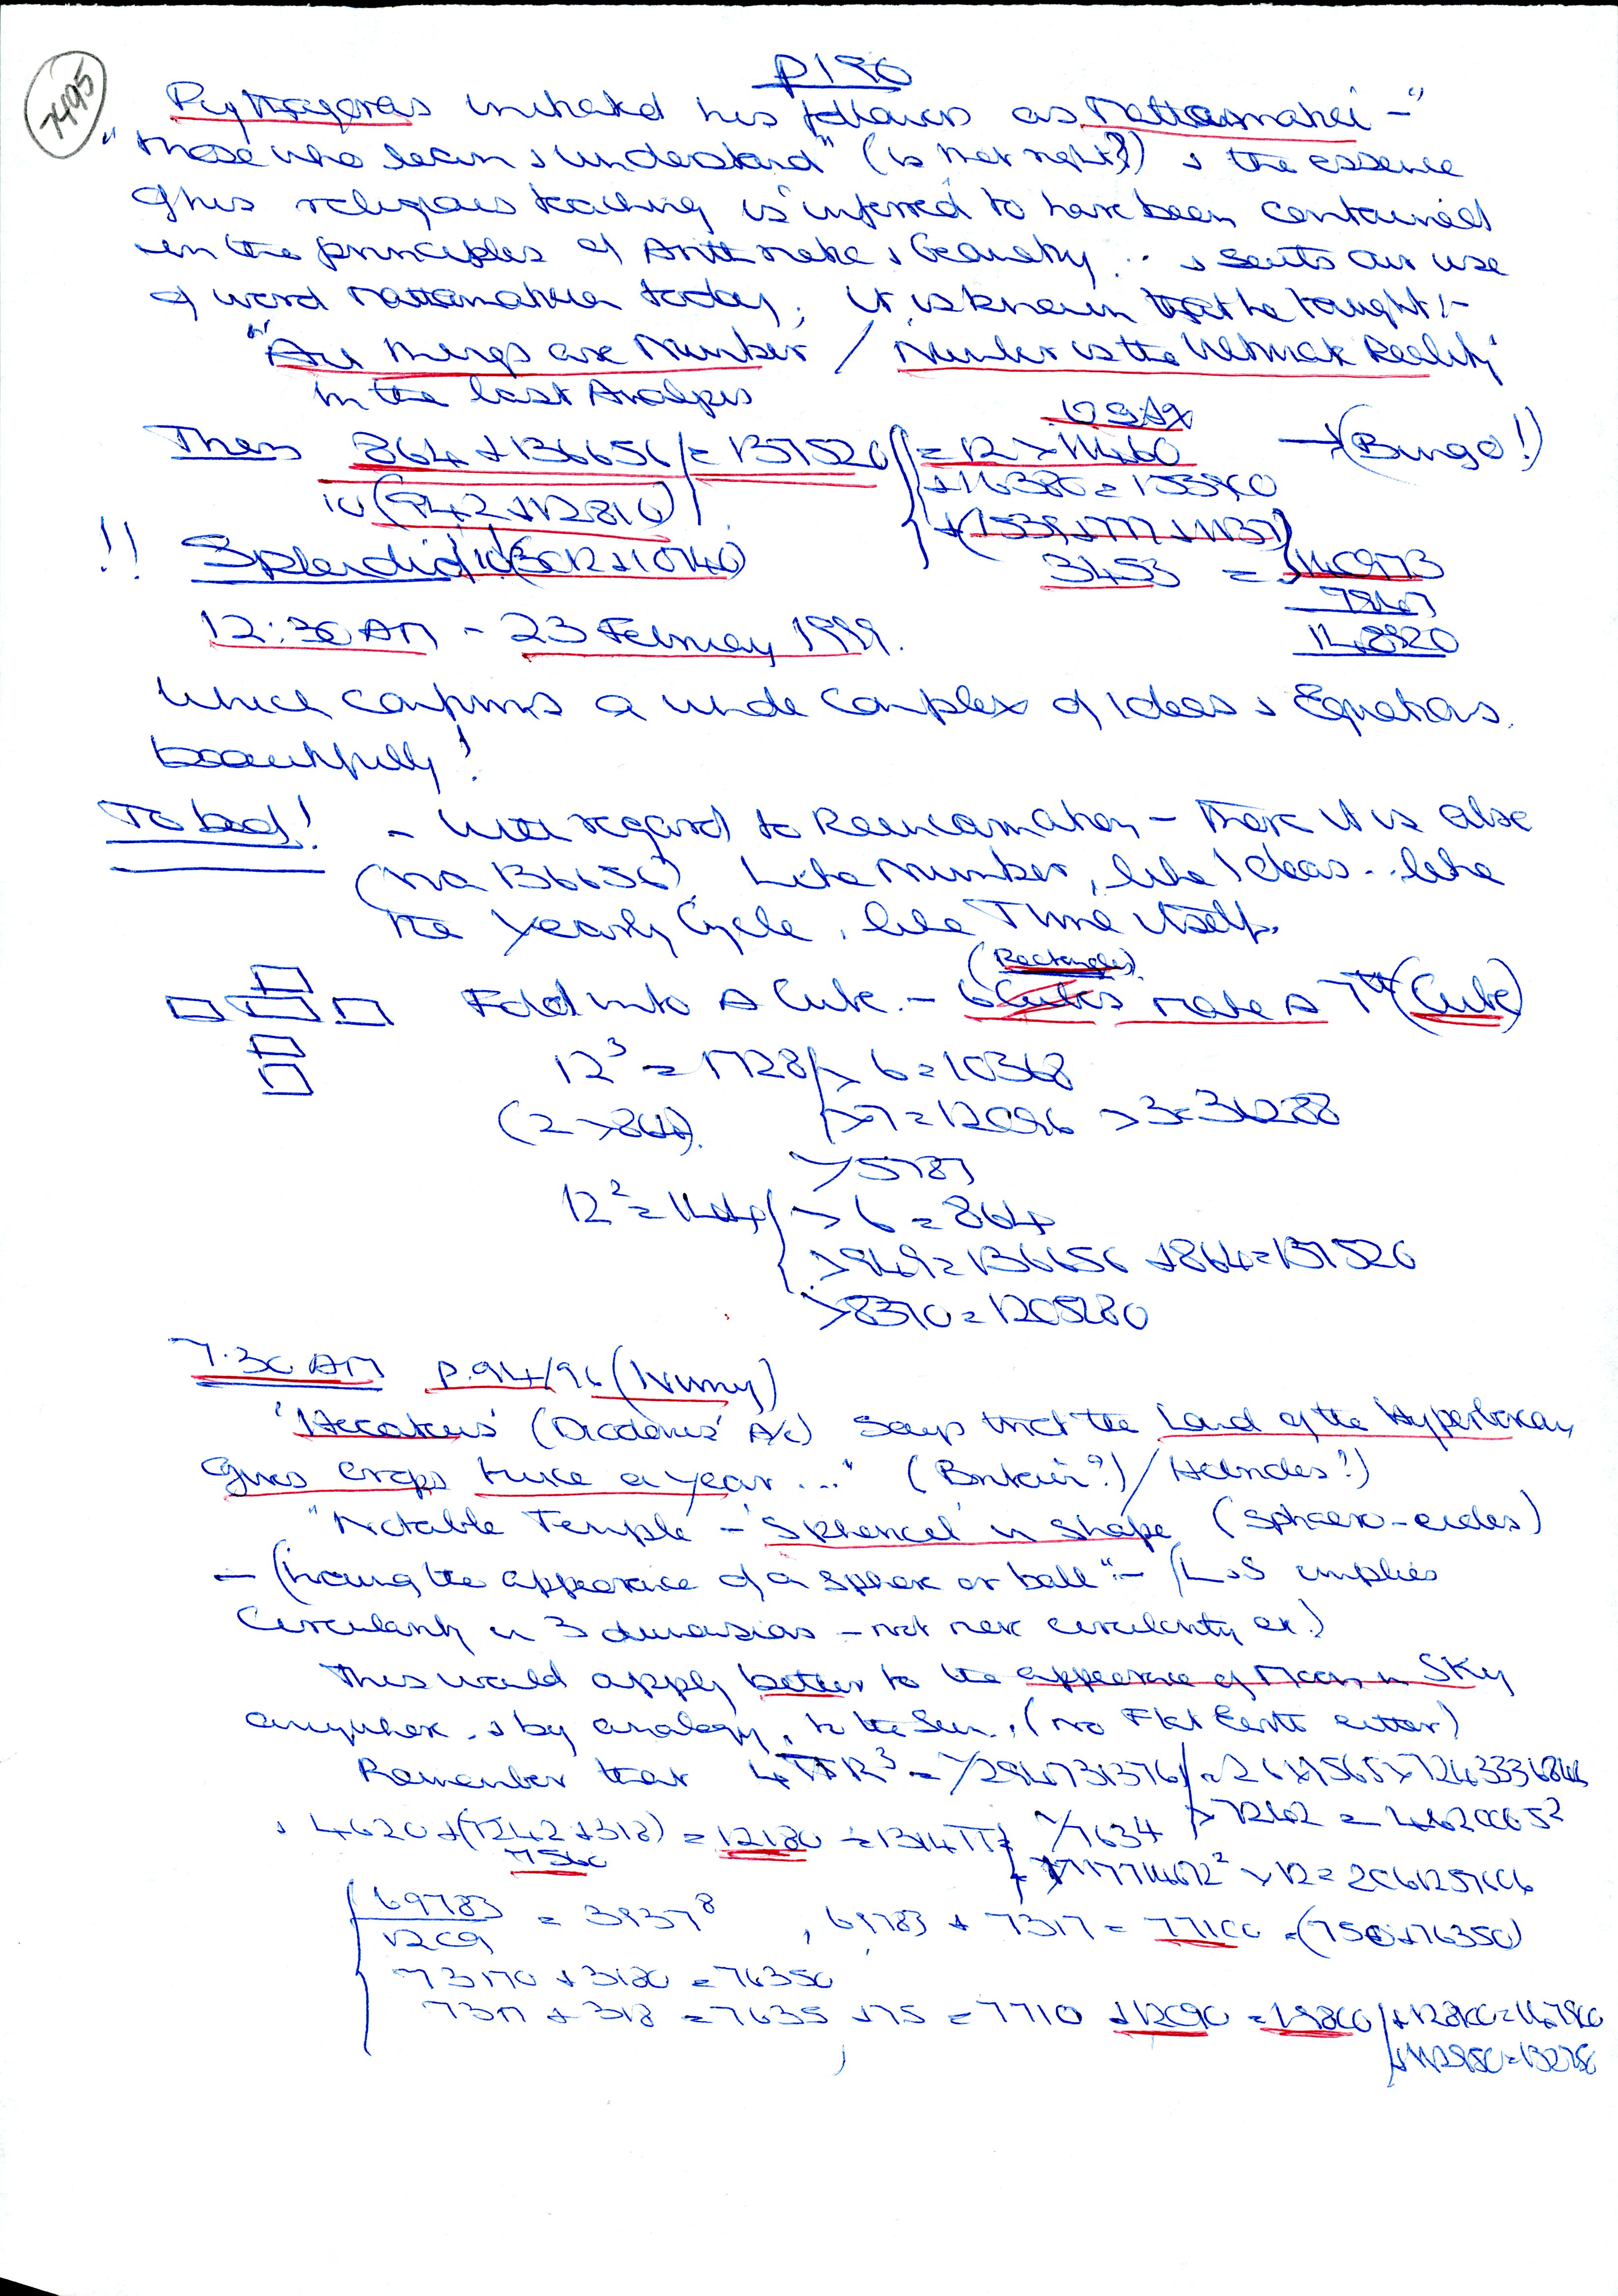 7495
p190
Pythagoras initiated his followers as Mathamatici - "
"those who learn & understand" (is that right?) & the essence
of his religious teaching is inferred to have been contained
in the principles of Arithmetic & Geometry .. &
of word Mathamatics today; it is known that he taught:-
"All things are Number / Number is the Ultimate Reality"
in the last Analysis
Then 864 + 136656 = 137520 = 12 × 11460 → (Bingo!)
+ 16380 = 153900
10(942 + 12810)
+ (1539 + 777 + 1137)
!! Splendid! 10(3012 + 10740)
3453 = 140973
7947
148920
12:30 AM - 23 February 1999.
Which confirms a whole complex of Ideas & Equations.
beautifully!
To bed! - With regard to Reincarnation - there it is also
(via 136656). Like Number, like Ideas .. like
the Yearly Cycle, like Time itself.
(Rectangles)
Fold into a Cube. - 6 make a 7th (Cube)
12³ = 1728 × 6 = 10368
(2 × 864). × 7 = 12096 × 3 = 36288
12² = 144 × 6 = 864
× 949 = 136656 + 864 = 137520
× 8370 = 1205280
7.30 AM p.94/96 (Ivimy)
'Hecateus' (Diodorus' A/c) says that the Land of the Hyperboreans
gives crops twice a year ..." (Britain?) / Hebrides?)
"Notable Temple - 'Spherical' in shape (sphaero-eides)
- (having the appearance of a sphere or ball" - /L&S implies
Circularity in 3 dimensions - not mere circularity etc.)
This would apply better to the appearance of Moon in Sky
anywhere, & by analogy, to the Sun, (no Flat Earth either)
Remember that 4πR³ =
+ 4620 + (7242 + 318) = 12180 = 1314π
7560
69783
/1209 = 3937⁸, 69783 + 7317 = 77100 = (750 + 76350)
73170 + 3180 = 76350
7317 + 318 = 7635 + 75 = 7710 + 12090 = 19800